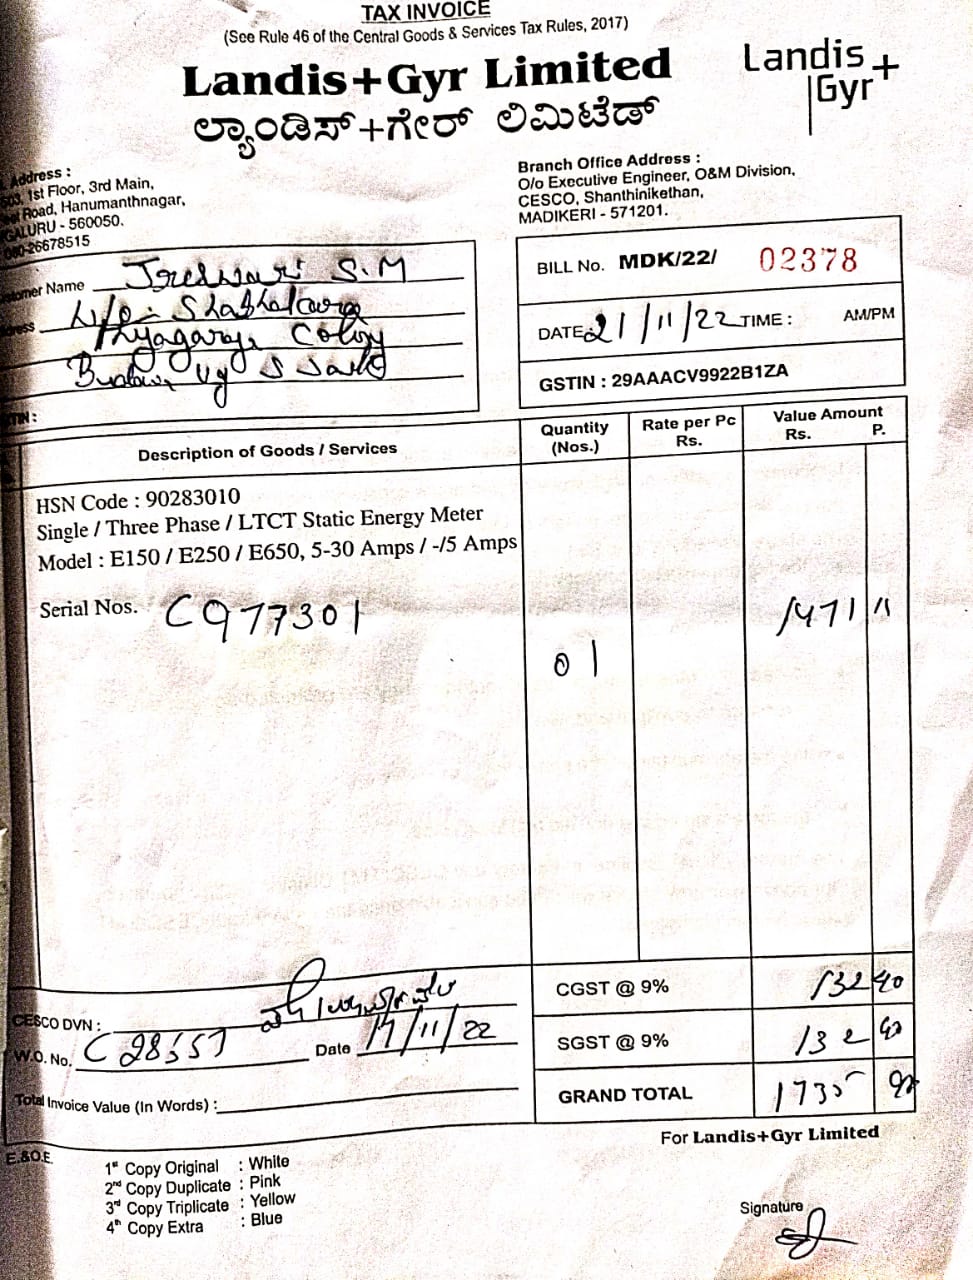 TAX INVOICE
(See Rule 46 of the Central Goods & Services Tax Rules, 2017)
Landis+Gyr Limited
ಲ್ಯಾಂಡಿಸ್+ಗೇರ್ ಲಿಮಿಟೆಡ್
Landis+
Gyr
Address :
1st Floor, 3rd Main,
Road, Hanumanthnagar,
GALURU - 560050.
080-26678515
Branch Office Address :
O/o Executive Engineer, O&M Division,
CESCO, Shanthinikethan,
MADIKERI - 571201.
Customer Name S.M
Address
Colony
BILL No. MDK/22/ 02378
DATE 21/11/22 TIME : AM/PM
GSTIN : 29AAACV9922B1ZA
Description of Goods / Services
Quantity (Nos.)
Rate per Pc Rs.
Value Amount Rs. P.
HSN Code : 90283010
Single / Three Phase / LTCT Static Energy Meter
Model : E150 / E250 / E650, 5-30 Amps / -/5 Amps
Serial Nos. C977301
01
1471 11
CGST @ 9% 132 40
SGST @ 9% 132 40
GRAND TOTAL 1735
CESCO DVN :
W.O. No. Date 11/22
Total Invoice Value (In Words) :
E.&O.E.
For Landis+Gyr Limited
1st Copy Original : White
2nd Copy Duplicate : Pink
3rd Copy Triplicate : Yellow
4th Copy Extra : Blue
Signature